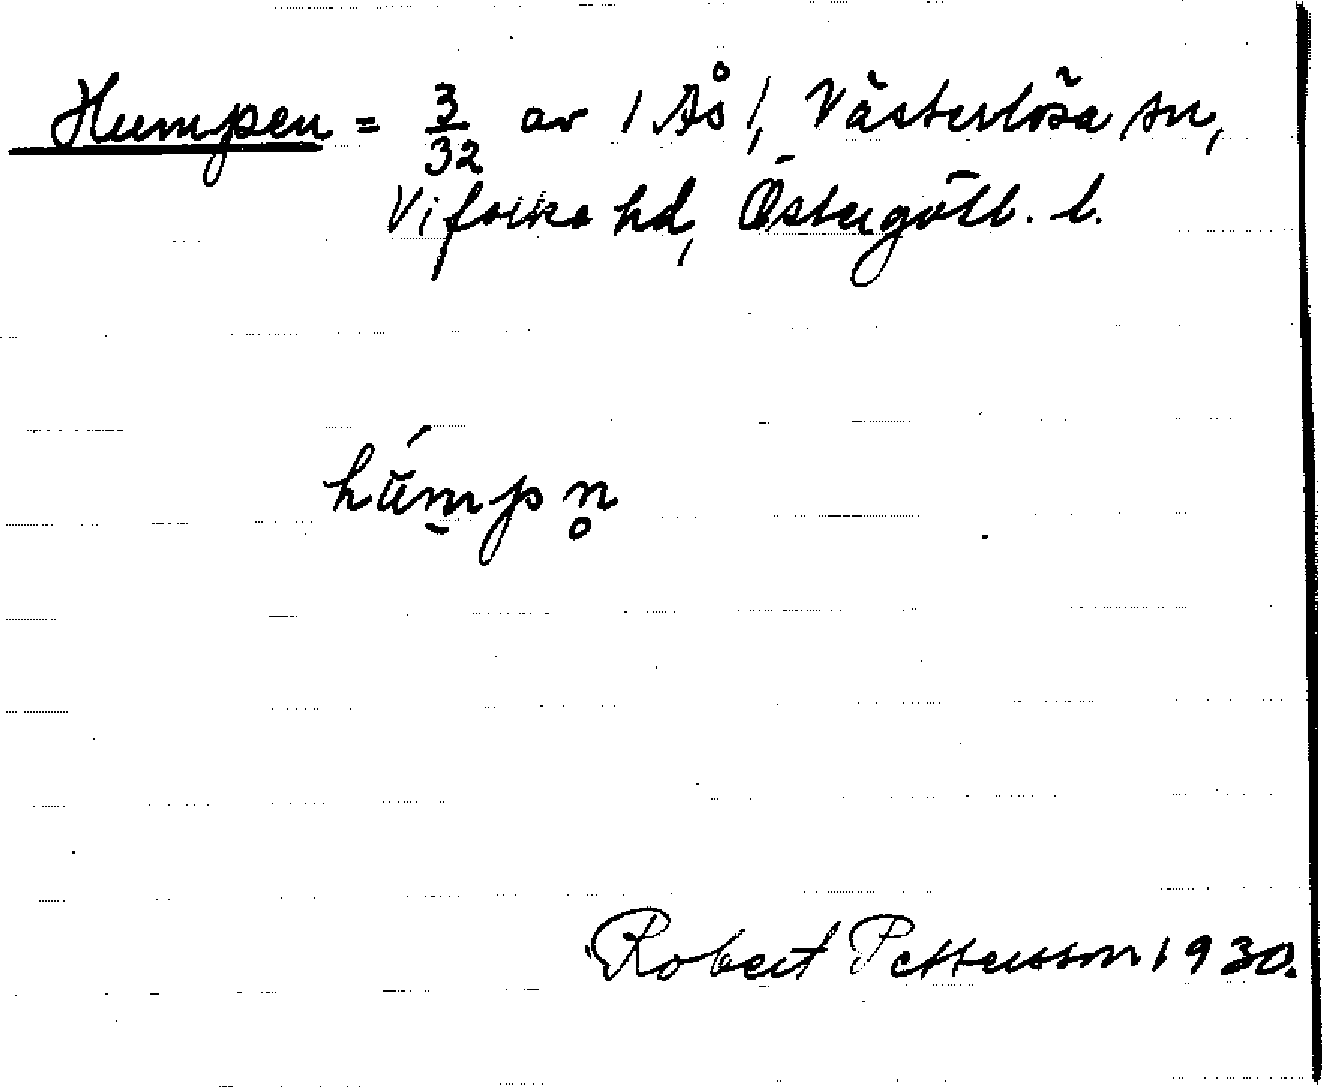 Humpen = 3/32 av 1 Ås 1, Västerlösa sn,
Vifolka hd, Östergötl. l.
húmpn̥
Robert Pettersson 1930.